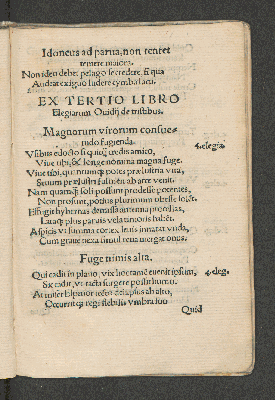 Idoneus ad parua, non tentet
temere maiora.
Non ideo debet pelago se credere, si qua
Audet exiguo ludere cymba lacu.
EX TERTIO LIBRO
Elegiarum Ouidij de tristibus.
Magnorum virorum consue-
tudo fugienda.
Vsibus edocto si quicq̃ credis amico, 4. elegia.
Viue tibi, & longe nomina magna fuge.
Viue tibi, quantumq̃ potes prælustria vita,
Sæuum prælustri fulmen ab arce venit.
Nam quamq̃ soli possunt prodesse potentes,
Non prosunt, potius plurimum obesse solet.
Effugit hybernas demissa antenna procellas,
Lataq̃ plus paruis vela timoris habet.
Aspicis vt summa cortex leuis innatet vnda,
Cum graue nexa simul rete mergat onus.
Fuge nimis alta.
Qui cadit in plano, vix hoc tamẽ euenit ipsum, 4. eleg.
Sic cadit, vt tacta surgere possit humo.
At miser Elpenor tecto delapsus ab alto,
Occurrit regi flebilis vmbra suo
Quid